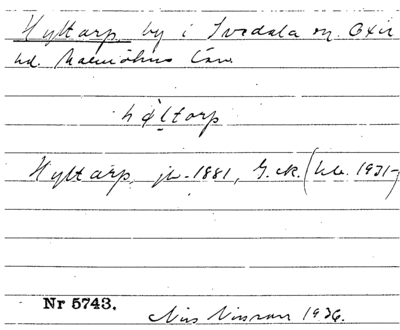 Hyltarp by i Svedala sn. Oxie
hd. Malmöhus län.
hø̣ltorp
Hyltarp, jb. 1881, G.K. (bl. 1931-
Nr 5743.
Nils Nilsson 1936.